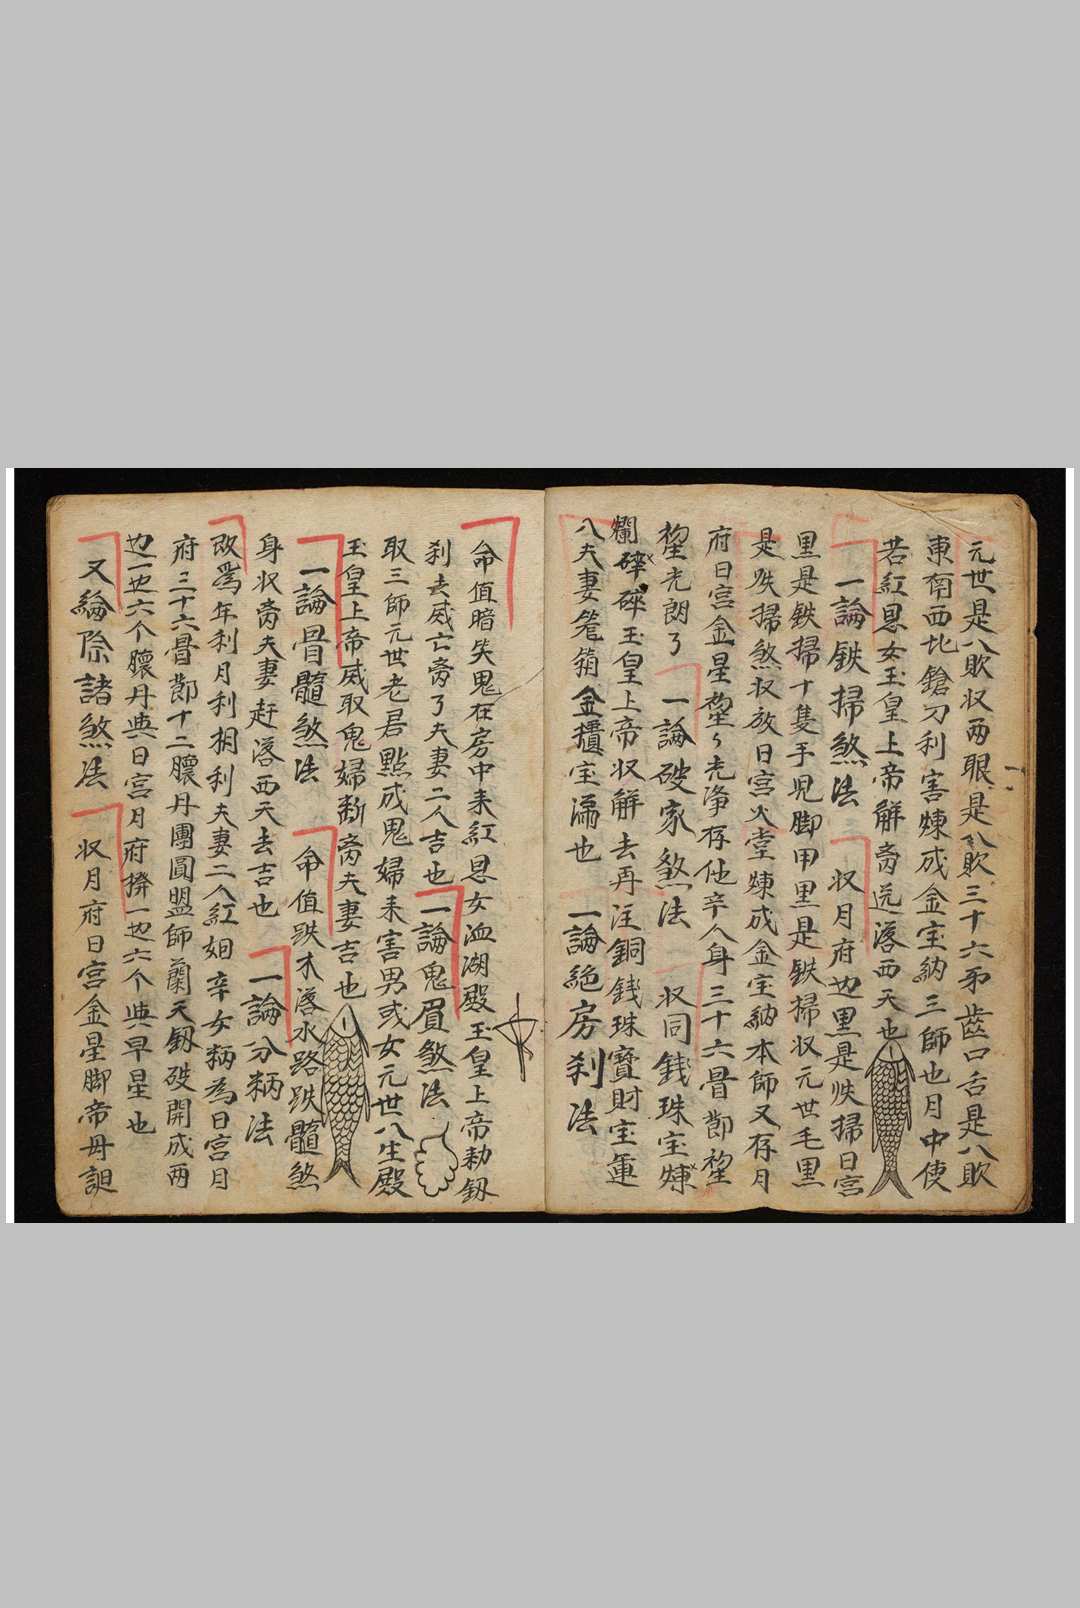 元世是八敗収両眼是八敗三十六牙齒口舌是八敗
東南西北鎗刀利害煉成金宝納三師也月中使
若紅恩女玉皇上帝解裔送落西天也
一論鉄掃煞法 収月府边黒是鉄掃日宮
黒是鉄掃十隻手児脚甲黒是鉄掃収元世毛黒
是鉄掃煞収放日宮火堂煉成金宝納本師又存月
府日宮金星 光淨存他辛人身三十六骨節
光朗了 一論破家煞法 収同銭珠宝煉
爛碎碎玉皇上帝収解去再注銅銭珠寶財宝運
八夫妻笼箱金櫃宝滿也 一論絶房刹法
命值暗失鬼在房中来紅恩女血湖殿玉皇上帝勑
刹去威亡裔了夫妻二人吉也 一論鬼眉煞法
取三師元世老君點成鬼婦来害男或女元世八生殿
玉皇上帝威取鬼婦斷裔夫妻吉也
一論骨髓煞法 命值跌木落水路跌髓煞
身収裔夫妻赶落西天去吉也 一論分柄法
改為年利月利相利夫妻二人紅 辛女柄為日宮月
府三十六骨節十二 丹團圓盟師蘭天 破開成両
边一边六个 丹與日宮月府 一边六个與早星也
又綸除諸煞法 収月府日宮金星脚帝母